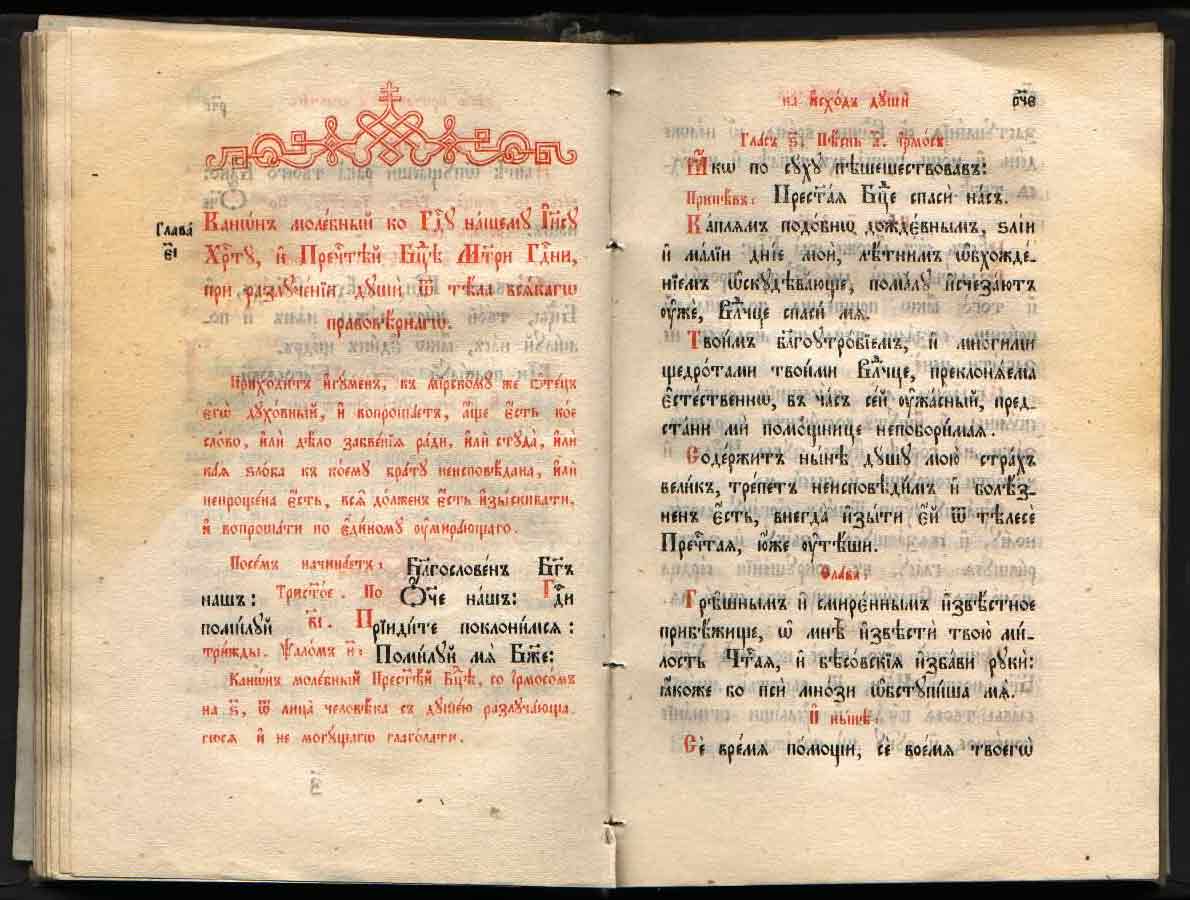 Глава̀
є҃і
Канѡ́нъ моле́бный ко Гдⷭ҇ꙋ на́шемꙋ І҆и҃сꙋ
Хрⷭ҇тꙋ̀, и҆ Пречⷭ҇тѣй Бцⷣѣ Мт҃ри Гдⷭ҇ни,
при разлꙋче́нїи дꙋшѝ ѿ тѣ́ла всѧ́кагѡ
правовѣ́рнагѡ.
Прихо́дитъ и҆гꙋ́менъ, въ мїрско́мꙋ же ѻ҆те́цъ
є҆гѡ̀ дꙋхо́вный, и҆ вопроша́етъ, а҆́ще є҆́сть ко́е
сло́во, и҆лѝ дѣ́ло забве́нїѧ ра́ди, и҆лѝ стꙋда̀, и҆лѝ
ка́ѧ ѕло́ба къ ко́емꙋ бра́тꙋ неисповѣ́дана, и҆лѝ
непроще́на є҆́сть, всѧ̑ до́лженъ є҆́сть и҆зыскива́ти,
и҆ вопроша́ти по є҆ди́номꙋ ᲂу҆мира́ющаго.
Посе́мъ начина́етъ: Бл҃гослове́нъ Бг҃ъ
на́шъ: Трист҃о́е. По Ѻ҆́ч҃е на́шъ: Гдⷭ҇и
поми́лꙋй в҃і. Прїиди́те поклони́мсѧ:
три́жды. Ѱало́мъ н҃: Поми́лꙋй мѧ̀ Бж҃е:
Канѡ́нъ моле́бный Прест҃ѣ́й Бцⷣѣ, со і҆рмосо́мъ
на ѕ҃, ѿ лица̀ человѣ́ка съ дꙋше́ю разлꙋча́юща‐
гѡсѧ и҆ не могꙋ́щагѡ глаго́лати.
на и҆схо́дъ дꙋшѝ
рч҃ѳ
Гла́съ ѕ҃. Пѣ́снь а҃. і҆рмо́съ:
Ꙗ҆́кѡ по сꙋ́хꙋ пѣшеше́ствовавъ:
Припѣ́въ: Прест҃а́ѧ Бцⷣе спасѝ на́съ.
Ка́плѧмъ подо́бнѡ дожде́внымъ, ѕлі́и
и҆ ма́лїи дні́е моѝ, лѣ́тнимъ ѡ҆бхожде́‐
нїемъ ѡ҆скꙋдѣва́юще, пома́лꙋ и҆счеза́ютъ
ᲂу҆жѐ, Влⷣчце спасѝ мѧ̀.
Твои́мъ бл҃гоꙋтро́бїемъ, и҆ мно́гими
щедро́тами твои́ми Влⷣчце, преклонѧ́ема
є҆сте́ственнѡ, въ ча́съ се́й ᲂу҆жа́сный, пред‐
ста́ни мѝ помо́щнице непобори́маѧ.
Содержи́тъ ны́нѣ дꙋ́шꙋ мою̀ стра́хъ
вели́къ, тре́петъ неисповѣди́мъ и҆ болѣ́з‐
ненъ є҆́сть, внегда̀ и҆зы́ти є҆́й ѿ тѣлесѐ
Пречⷭ҇таѧ, ю҆́же ᲂу҆тѣ́ши.
Сла́ва:
Грѣ́шнымъ и҆ смире́ннымъ и҆звѣ́стное
прибѣ́жище, ѡ҆ мнѣ̀ и҆звѣстѝ твою̀ ми́‐
лость Чтⷭ҇аѧ, и҆ бѣсо́вскїѧ и҆зба́ви рꙋкѝ:
ꙗ҆́коже бо псѝ мно́зи ѡ҆бстꙋпи́ша мѧ̀.
И҆ ны́нѣ:
Сѐ вре́мѧ по́мощи, сѐ вре́мѧ твоегѡ̀